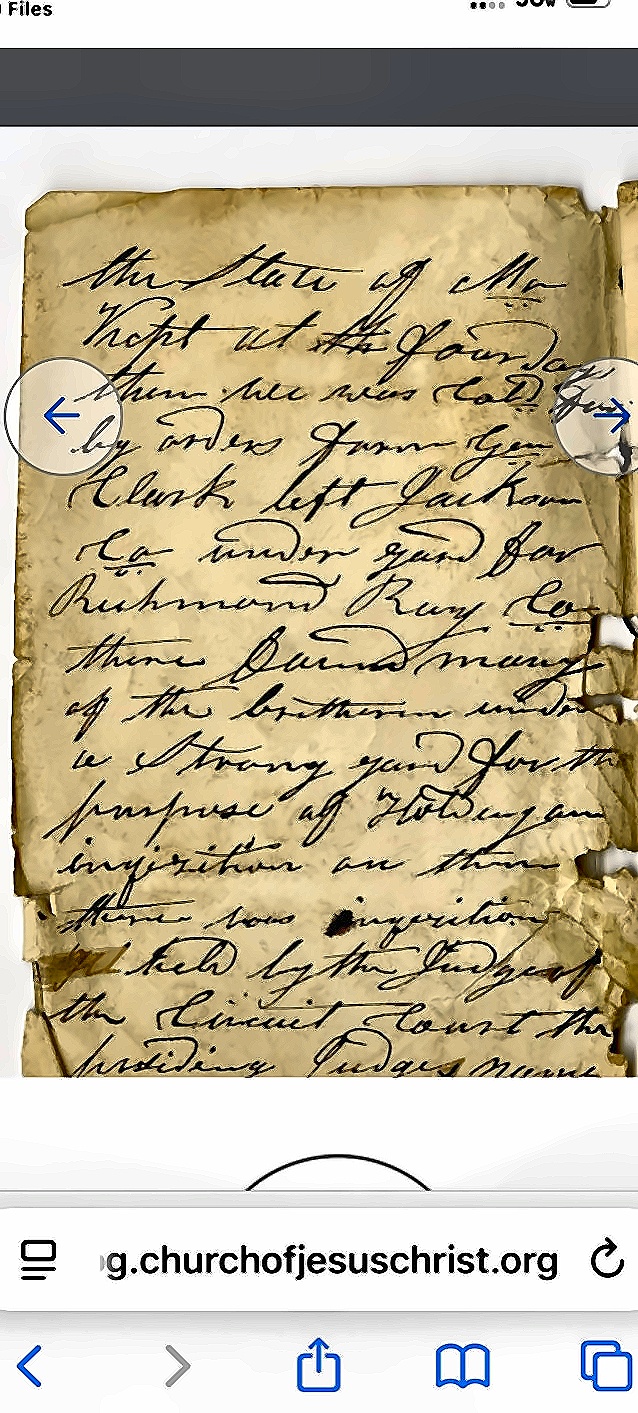 Files
the State of Mo
Kept at the four day
then we was
by orders form Gen
Clark left Jackson
Co under gard for
Richmond Ray Co
there faund many
of the britherin under
a Strong gard for th
purpose of Holdeng an
inqisition on them
there was inqusition
held by the Judge of
the Circuit Court the
presiding Judges name
g.churchofjesuschrist.org